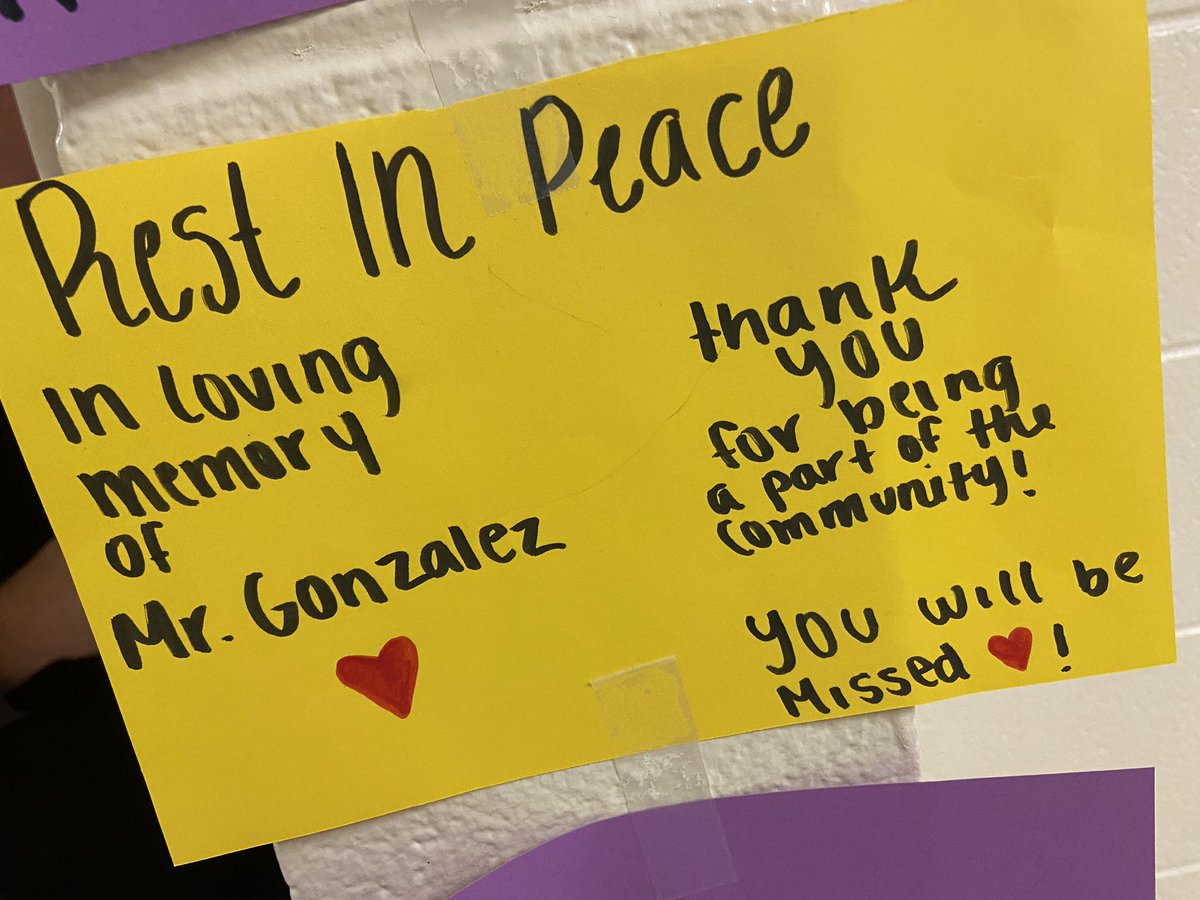 Rest In Peace
In loving
memory
of
Mr. Gonzalez
thank
you
for being
a part of the
community!
you will be
Missed ❤!